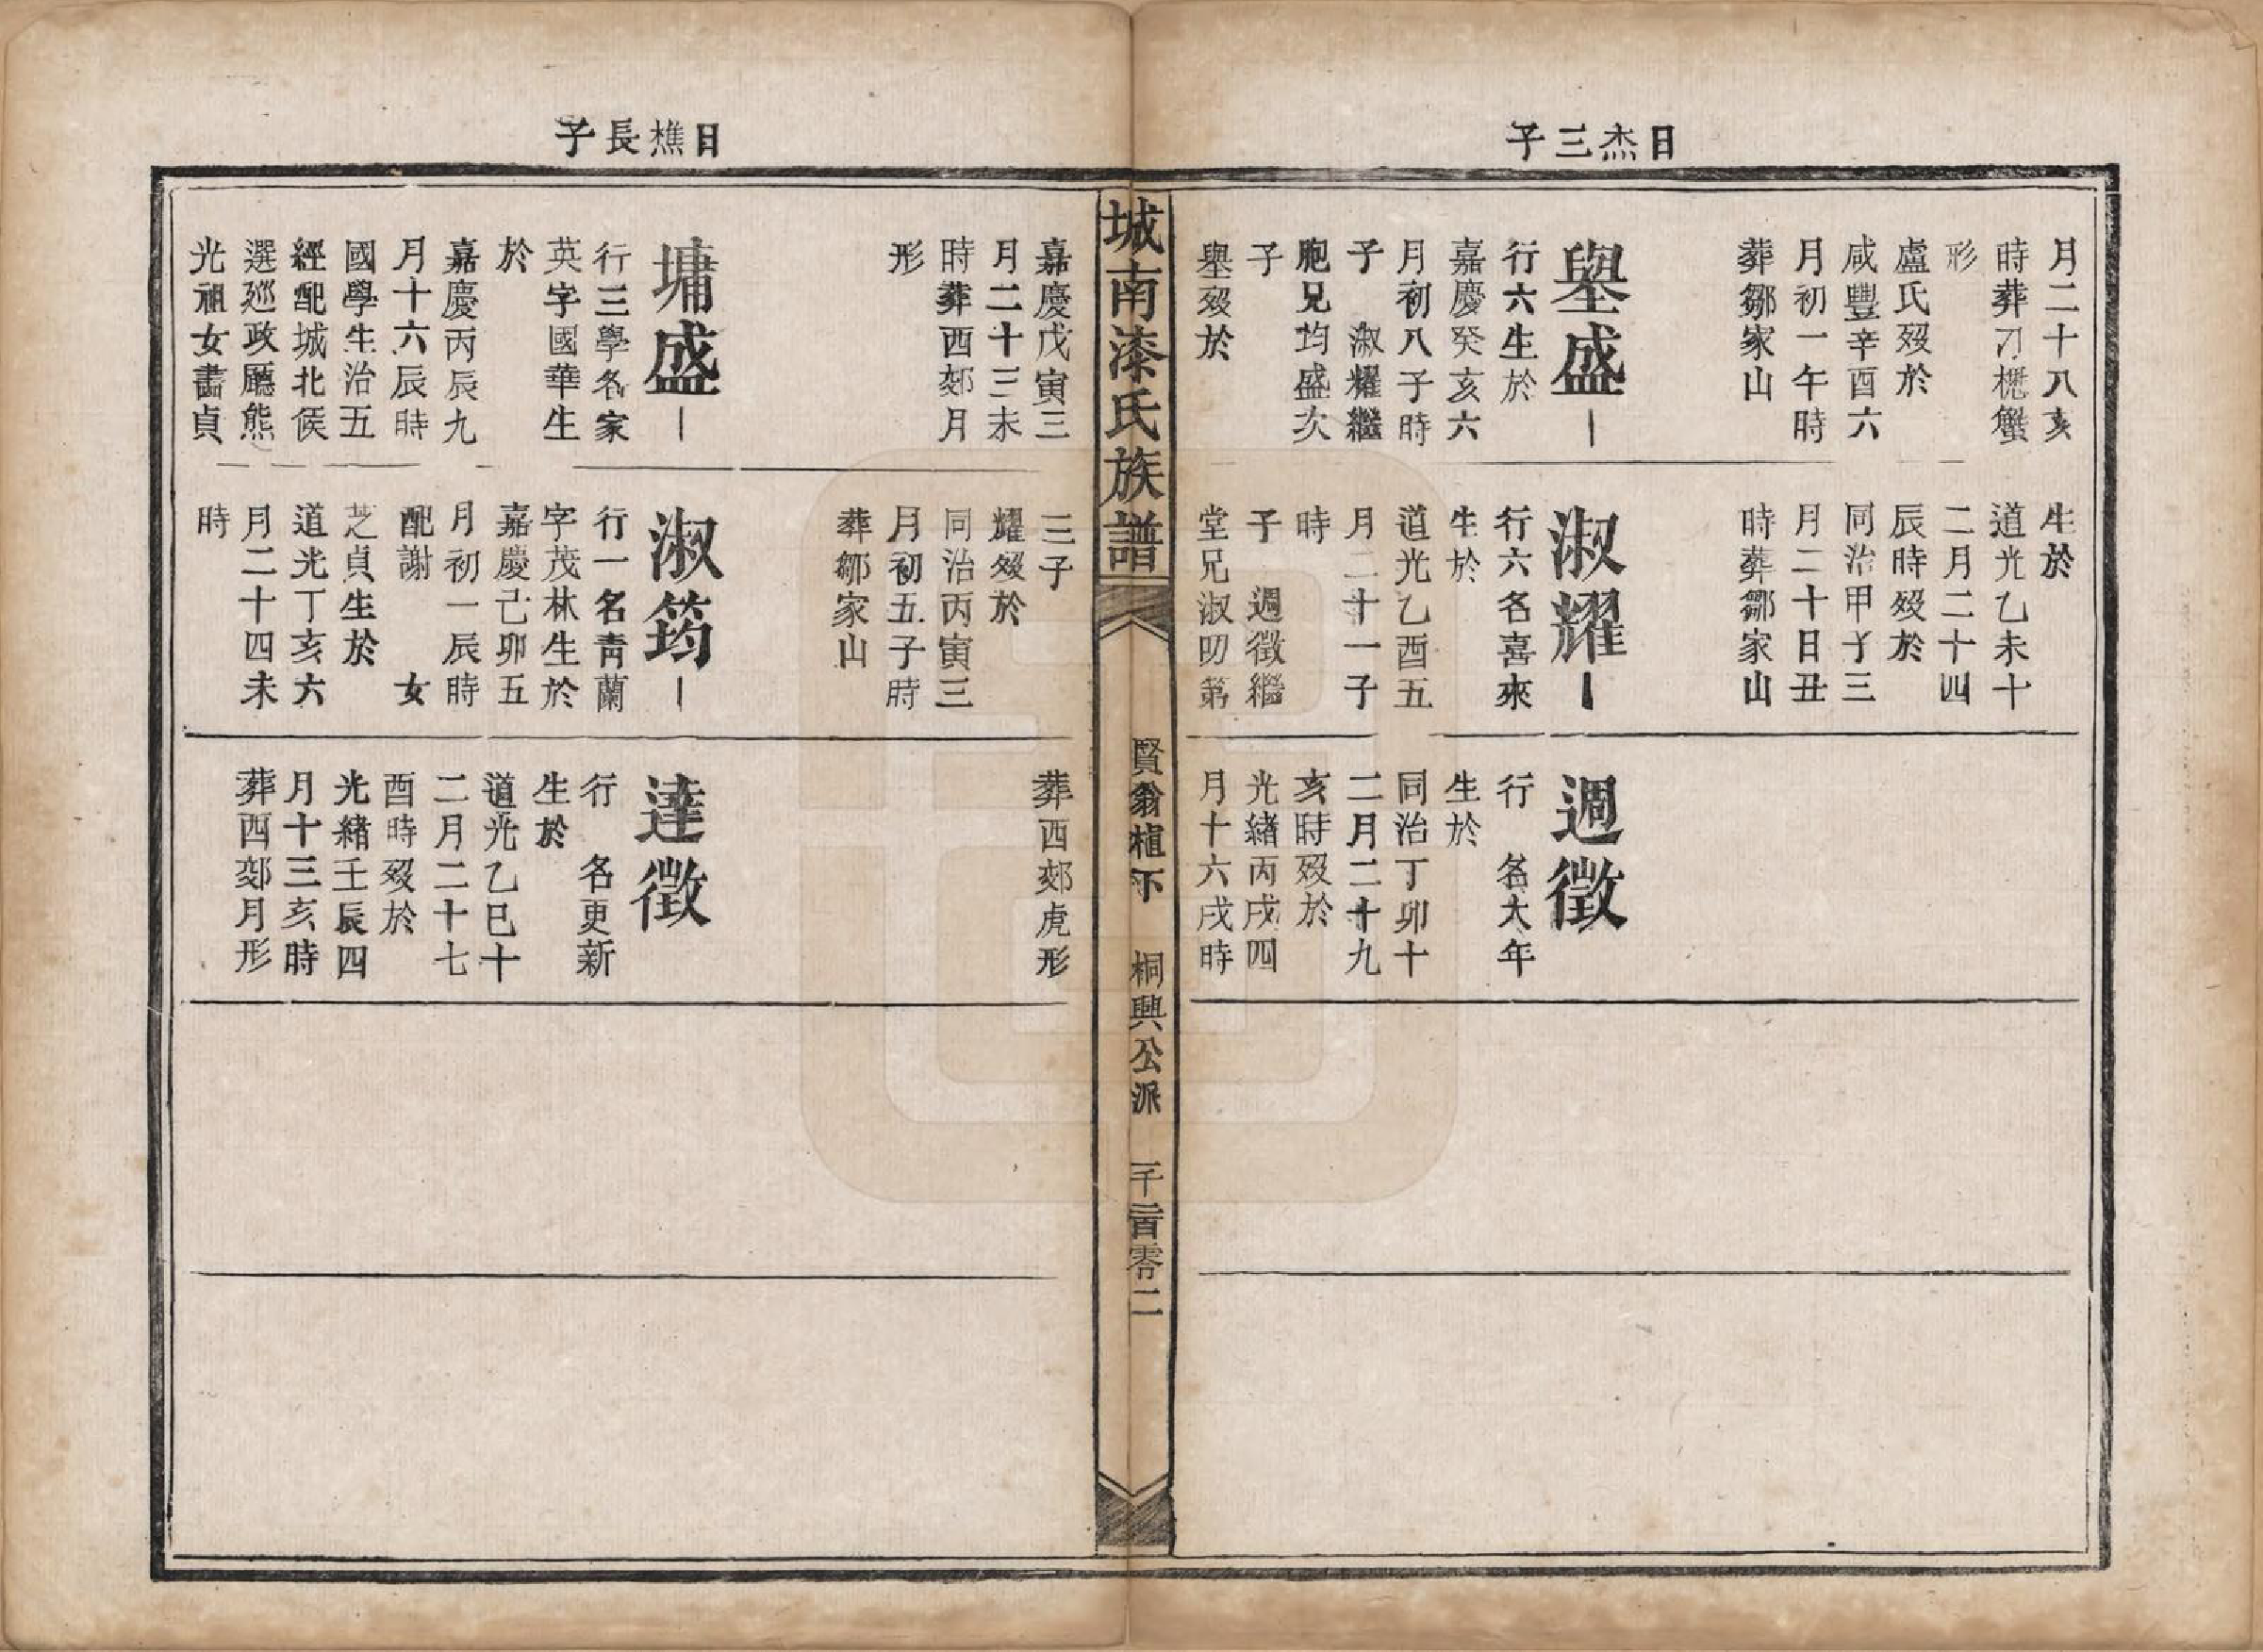 日杰三子
月二十八亥
時葬刀樾蟹
形
盧氏歿於
咸豐辛酉六
月初一午時
葬鄒家山
壆盛
行六生於
嘉慶癸亥六
月初八子時
子 淑耀繼
胞兄均盛次
子
壆歿於
生於
道光乙未十
二月二十四
辰時歿於
同治甲子三
月二十日丑
時葬鄒家山
淑耀
行六名喜來
生於
道光乙酉五
月二十一子
時
子 週徵繼
堂兄淑昒第
週徵
行 名大年
生於
同治丁卯十
二月二十九
亥時歿於
光緒丙戌四
月十六戌時
城南漆氏族譜
賢翁植下 桐興公派 一千二百零二
日樵長子
嘉慶戊寅三
月二十三未
時葬西郊月
形
墉盛
行三學名家
英字國華生
於
嘉慶丙辰九
月十六辰時
國學生治五
經配城北侯
選廵政廳熊
光祖女書貞
三子
耀歿於
同治丙寅三
月初五子時
葬鄒家山
淑筠
行一名靑蘭
字茂林生於
嘉慶己卯五
月初一辰時
配謝 女
芝貞生於
道光丁亥六
月二十四未
時
葬西郊虎形
達徵
行 名更新
生於
道光乙巳十
二月二十七
酉時歿於
光緒壬辰四
月十三亥時
葬西郊月形